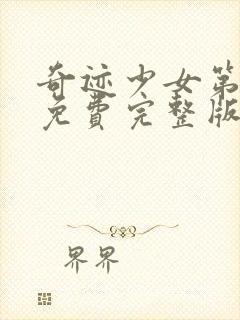 奇迹少女第
免费完整版
界界